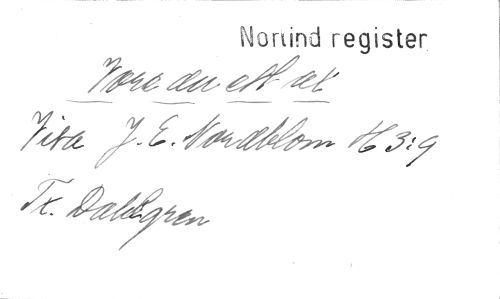 Norlind register
Vore du ett ax
Visa J. E. Nordblom H 3:9
Tx. Dahlgren